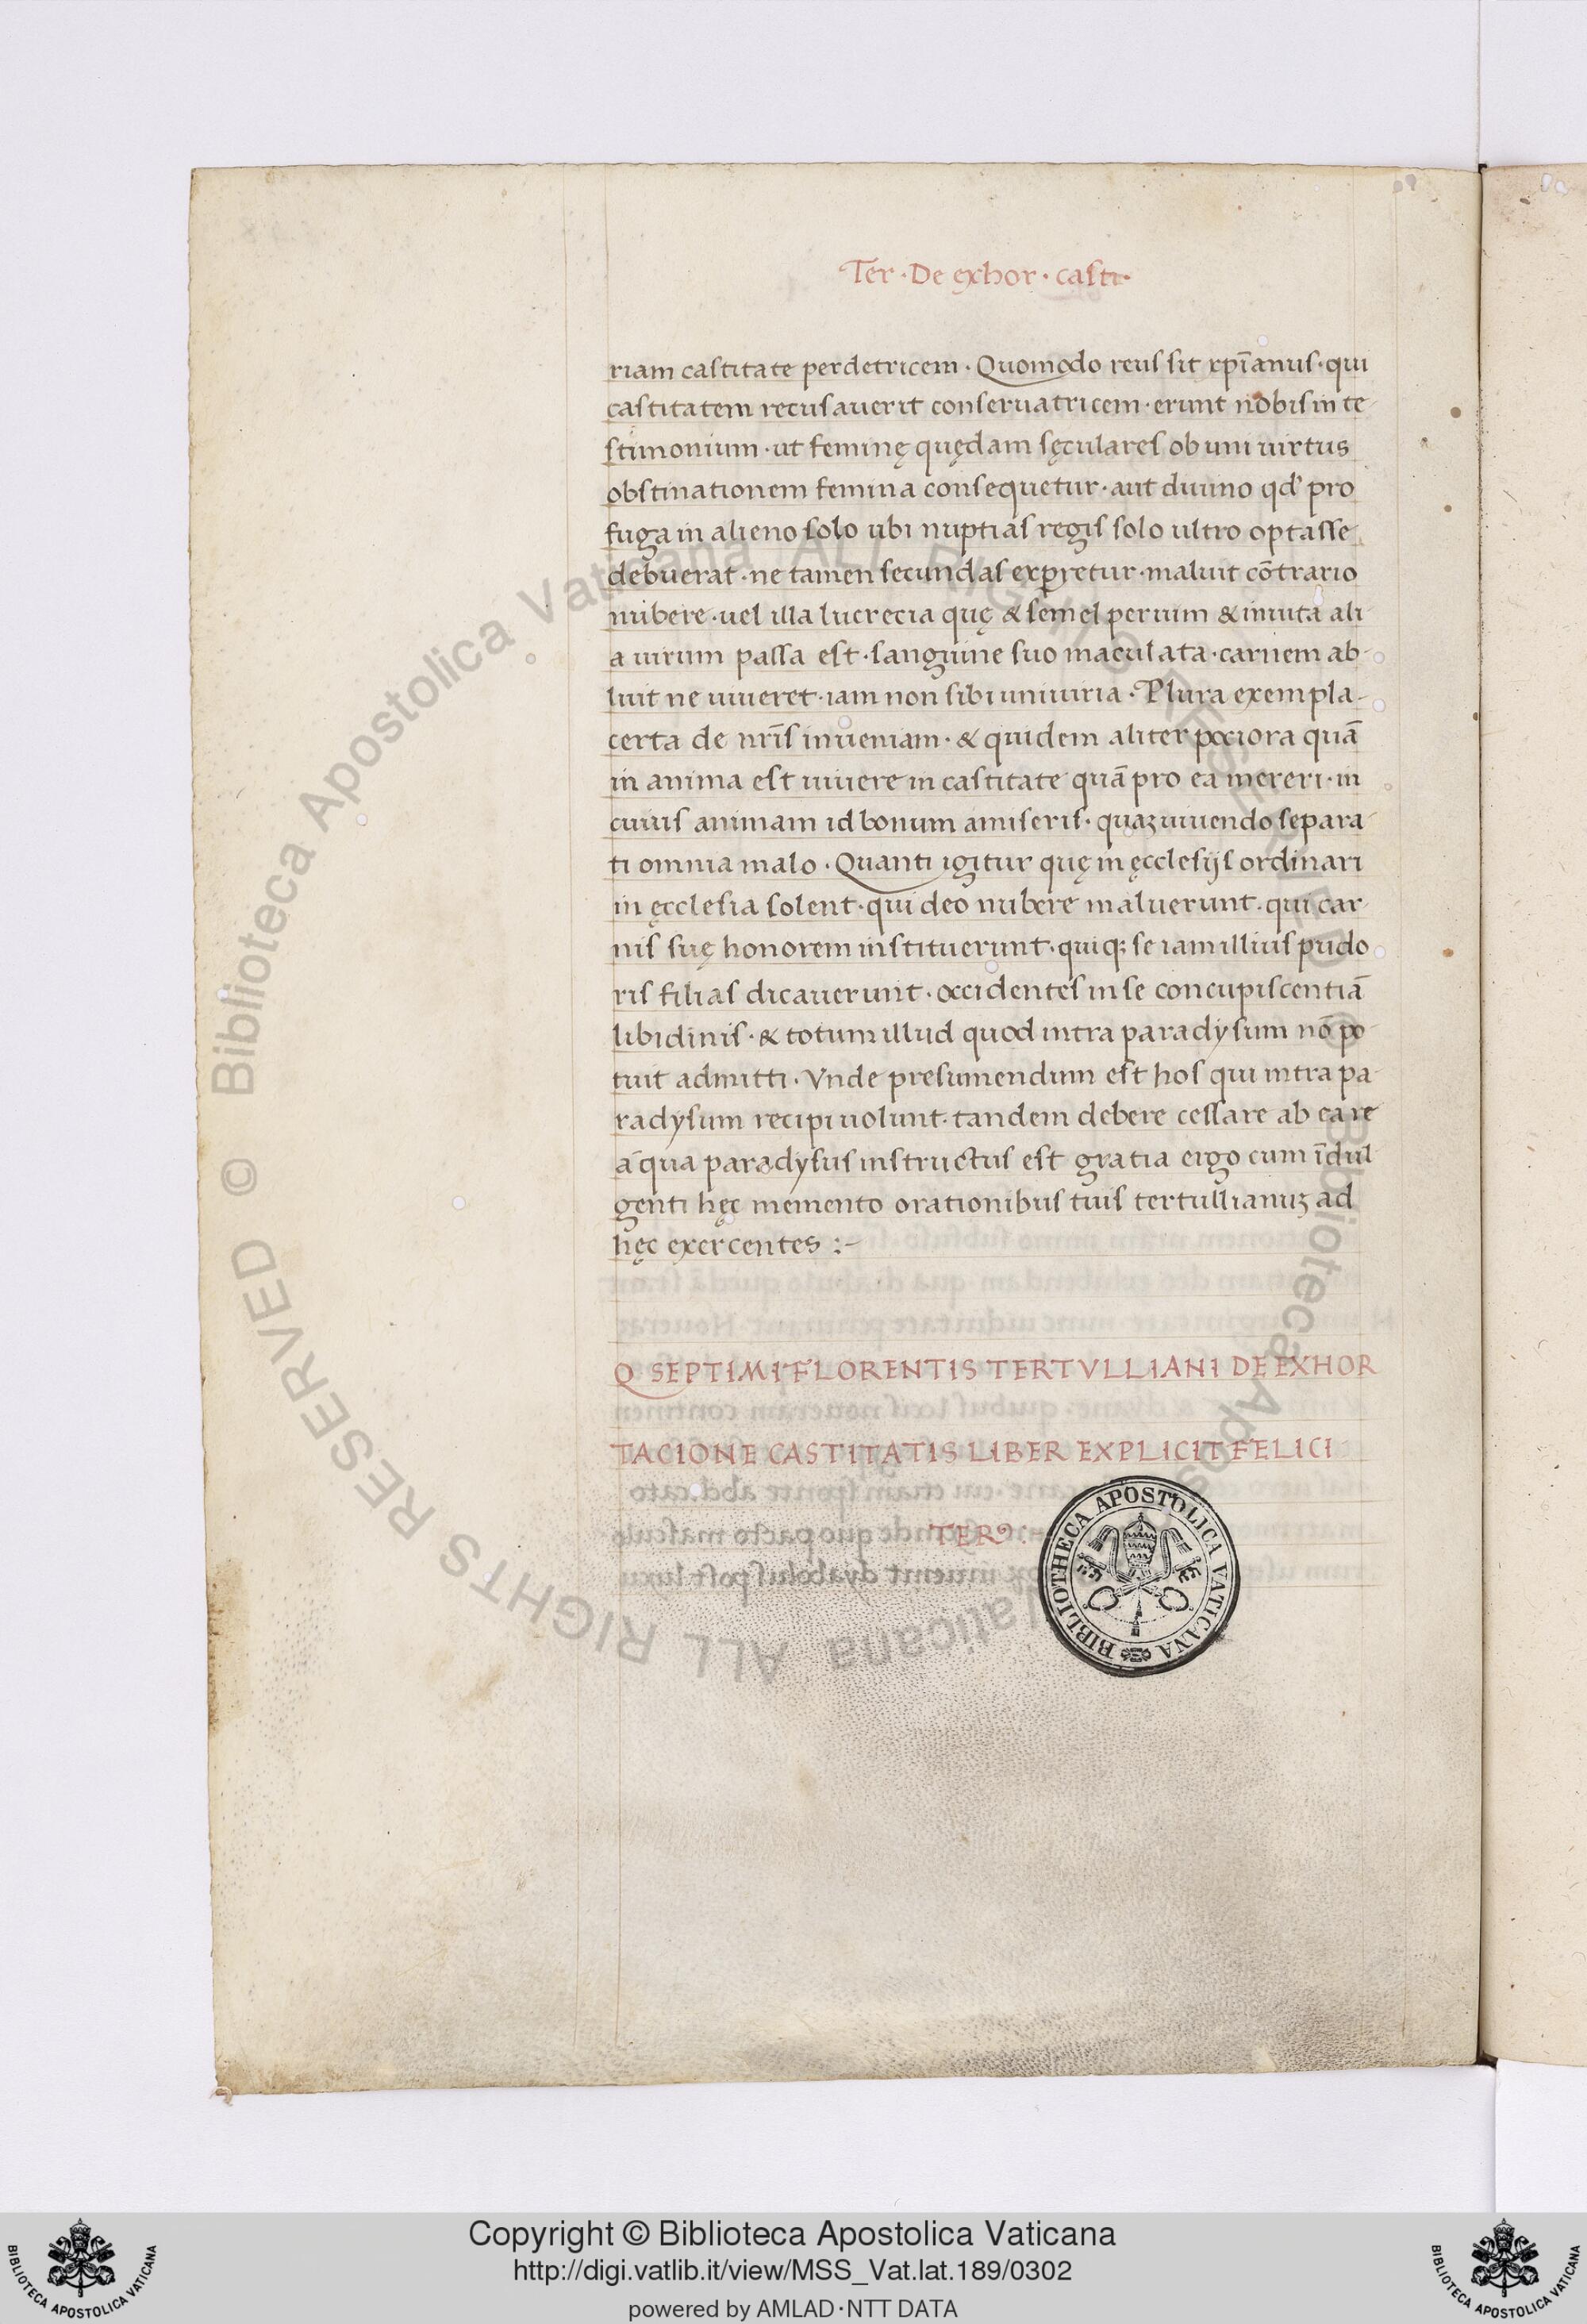 Ter · De exhor · casti·
riam castitate perdetricem · Quomodo reus sit xp̄ianus · qui
castitatem recusauerit conseruatricem · erunt nobis in te
stimonium · ut feminę quędam sęculares ob uni uirtus
obstinationem femina consequetur · aut diuino qd' pro
fuga in alieno solo ubi nuptias regis solo ultro optasse
debuerat · ne tamen secundas experretur · maluit cōtrario
nubere · uel illa lucrecia quę & semel per uim & inuita ali
a uirum passa est · sanguine suo maculata · carnem ab
luit ne uiueret · iam non sibi uniuiria · Plura exempla
certa de nr̄is inueniam · & quidem aliter pociora quā
in anima est uiuere in castitate quā pro ea mereri · in
cuius animam id bonum amiseris · quaʒ uiuendo separa
ti omnia malo · Quanti igitur quę in ęcclesijs ordinari
in ęcclesia solent · qui deo nubere maluerunt · qui car
nis suę honorem instituerunt · quiqʒ se iam illius pudo
ris filias dicauerunt · occidentes in se concupiscentiā
libidinis · & totum illud quod intra paradysum nō po
tuit admitti · Vnde presumendum est hos qui intra pa
radysum recipi uolunt · tandem debere cessare ab ea re
a qua paradysus instructus est gratia ergo cum īdul
genti hęc memento orationibus tuis tertullianuʒ ad
hęc exercentes :-
Q SEPTIMI FLORENTIS TERTVLLIANI DE EXHOR
TACIONE CASTITATIS LIBER EXPLICIT FELICI
TER :
BIBLIOTHECA APOSTOLICA VATICANA
© Biblioteca Apostolica Vaticana ALL RIGHTS RESERVED
© Biblioteca Apostolica Vaticana ALL RIGHTS RESERVED
Copyright © Biblioteca Apostolica Vaticana
http://digi.vatlib.it/view/MSS_Vat.lat.189/0302
powered by AMLAD·NTT DATA
BIBLIOTECA APOSTOLICA VATICANA
BIBLIOTECA APOSTOLICA VATICANA